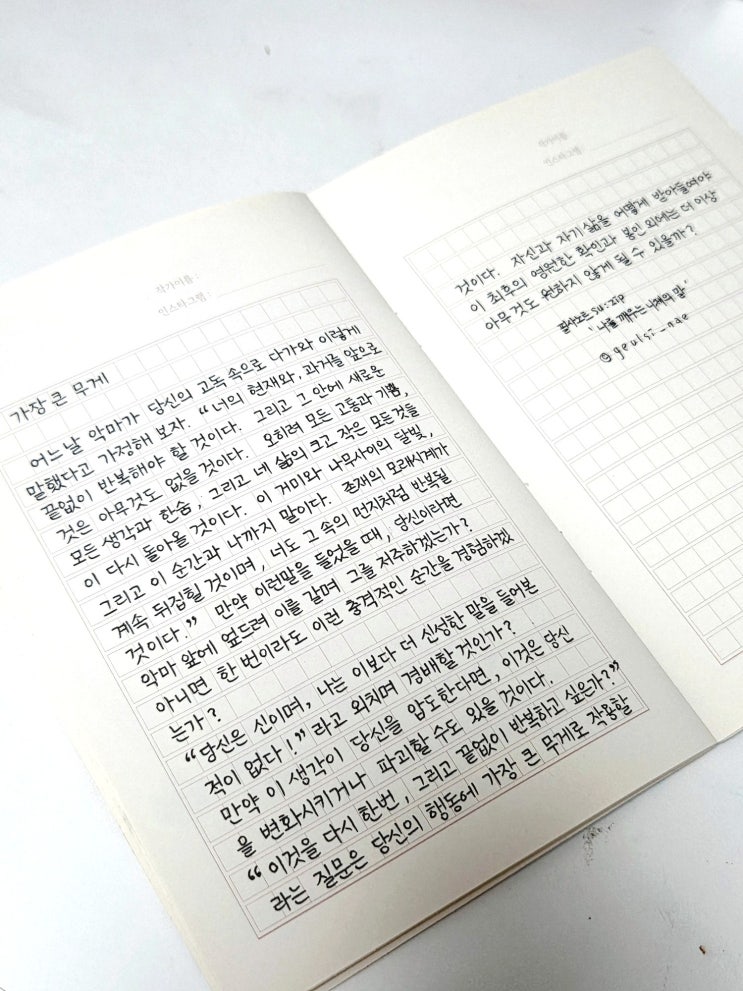 작가이름 :
인스타그램 :
가장 큰 무게
어느날 악마가 당신의 고독 속으로 다가와 이렇게
말했다고 가정해 보자. “너의 현재와, 과거를 앞으로
끝없이 반복해야 할 것이다. 그리고 그 안에 새로운
것은 아무것도 없을 것이다. 오히려 모든 고통과 기쁨,
모든 생각과 한숨, 그리고 네 삶의 크고 작은 모든것들
이 다시 돌아올 것이다. 이 거미와 나무사이의 달빛,
그리고 이 순간과 나까지 말이다. 존재의 모래시계가
계속 뒤집힐 것이며, 너도 그 속의 먼지처럼 반복될
것이다.” 만약 이런말을 들었을 때, 당신이라면
악마 앞에 엎드려 이를 갈며 그를 저주하겠는가?
아니면 한 번이라도 이런 충격적인 순간을 경험하겠
는가?
“당신은 신이며, 나는 이보다 더 신성한 말을 들어본
적이 없다!” 라고 외치며 경배할 것인가?
만약 이 생각이 당신을 압도한다면, 이것은 당신
을 변화시키거나 파괴할 수도 있을 것이다.
“이것을 다시 한번, 그리고 끝없이 반복하고 싶은가?”
라는 질문은 당신의 행동에 가장 큰 무게로 작용할
작가이름:
인스타그램:
것이다. 자신과 자기 삶을 어떻게 받아들여야
이 최후의 영원한 확인과 봉인 외에는 더 이상
아무것도 원하지 않게 될 수 있을까?
필사노트 su:zip
"나를 깨우는 니체의 말"
@geulsi_nae